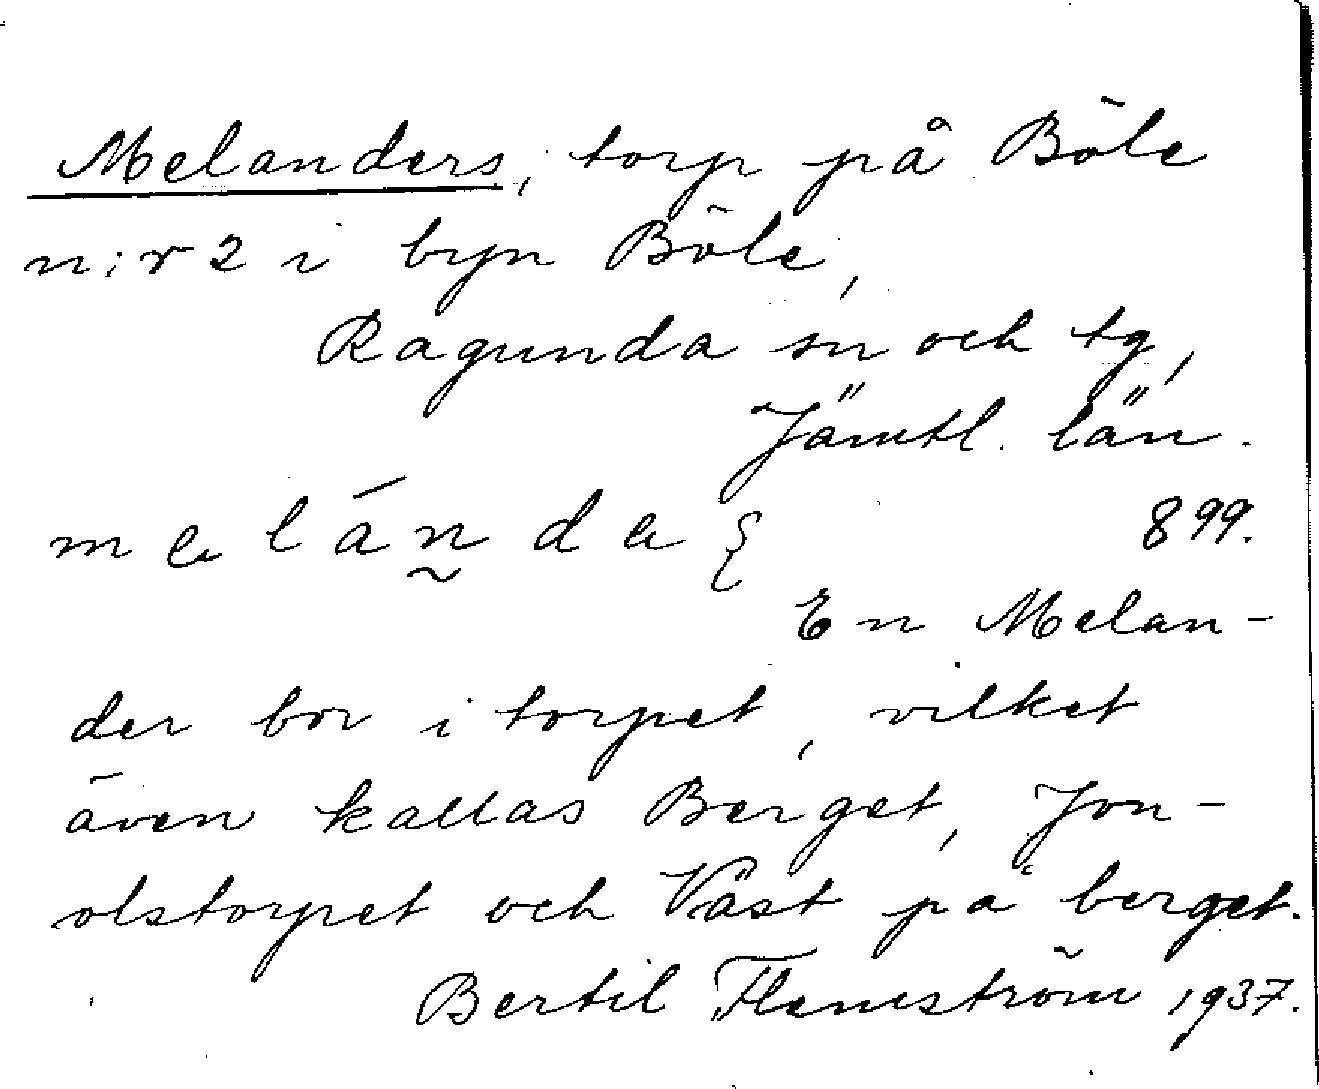 Melanders, torp på Böle
n:r 2 i byn Böle,
Ragunda sn och tg,
Jämtl. län.
899.
En Melan-
der bor i torpet, vilket
även kallas Berget, Jon-
olstorpet och Väst på berget.
Bertil Flemström 1937.